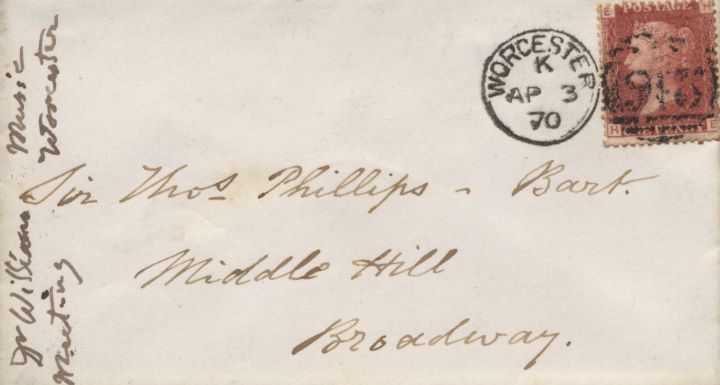 Dr Williams Music
Meeting Worcester
WORCESTER
K
AP 3
70
E POSTAGE H
918
H ONE PENNY E
Sir Thos Phillips - Bart.
Middle Hill
Broadway.